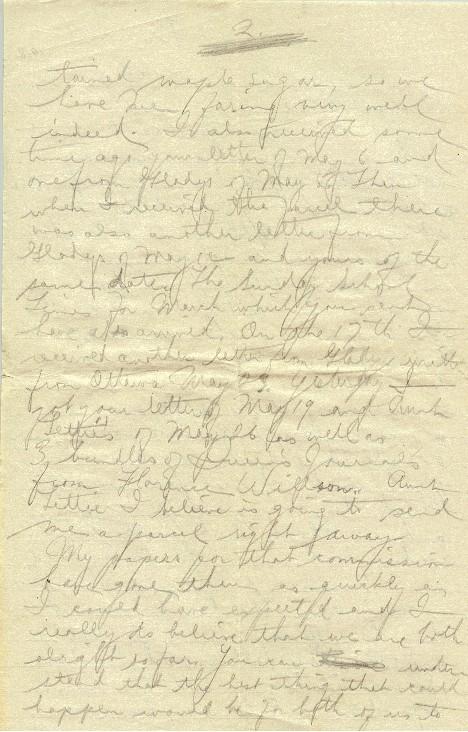 2.
tained maple sugar, so we
have been faring very well
indeed. I also received some
time ago your letter of May 6 and
one from Gladys of May Then
when I received the parcel there
was also another letter from
Gladys of May 12 and yours of the
same date. The Sunday School
Times for March which you sent
have also arrived. On the 17th I
received another letter from Gladys written
from Ottawa May 23. Yesterday I
got your letter of May 19 and Aunt
Lettie's of May 26 as well as
3 bundles of Journals
from Florence Willson. Aunt
Lettie I believe is going to send
me a parcel right away.
My papers for that commission
have gone thru as quickly as
I could have expected and I
really do believe that we are both
alright so far. You can under
stand that the best thing that could
happen would be for both of us to